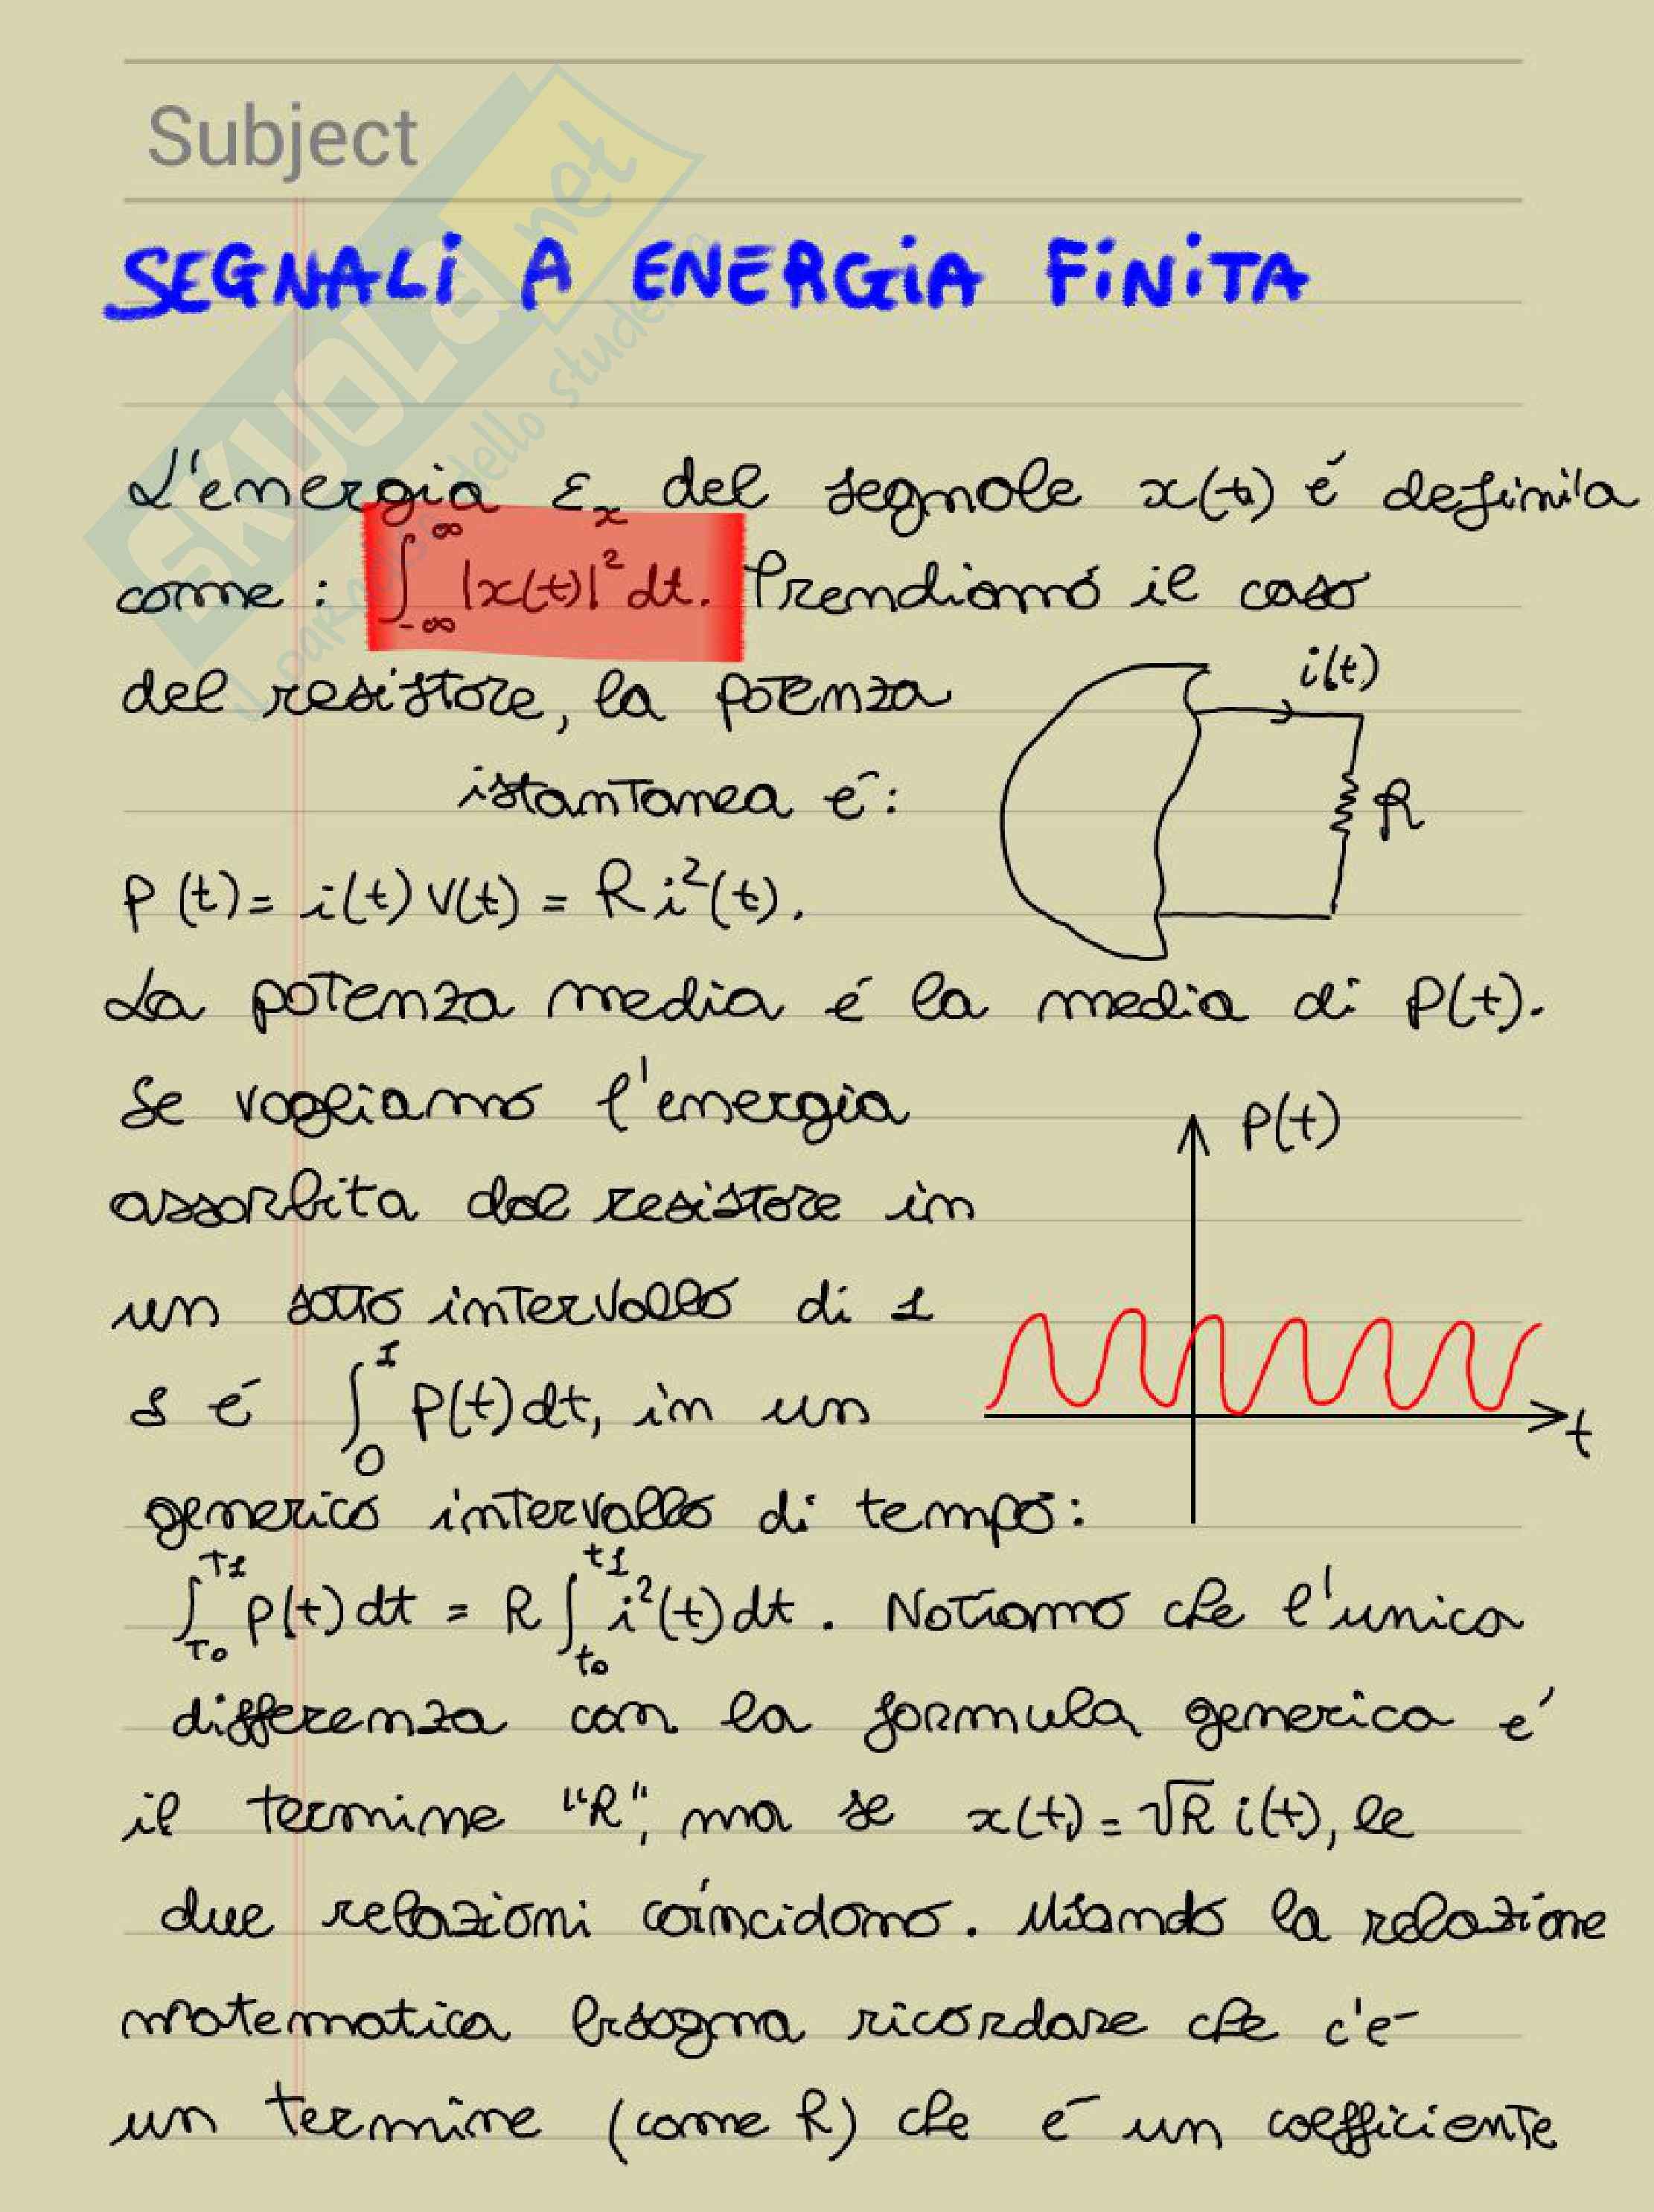 Subject
SEGNALI A ENERGIA FINITA
SKUOLA.net
il paradiso dello studente
L'energia εₓ del segnale x(t) é definita
come : ∫_{-∞}^{∞} |x(t)|² dt. Prendiamo il caso
del resistore, la potenza
i(t)
istantanea é:
R
P(t) = i(t) V(t) = R i²(t).
La potenza media é la media di P(t).
Se vogliamo l'energia
P(t)
assorbita dal resistore in
un sotto intervallo di 1
s é ∫_0^1 P(t) dt, in un
t
generico intervallo di tempo:
∫_{T0}^{T1} P(t) dt = R ∫_{t0}^{t1} i²(t) dt. Notiamo che l'unica
differenza con la formula generica é
il termine "R", ma se x(t) = √R i(t), le
due relazioni coincidono. Usando la relazione
matematica bisogna ricordare che c'é
un termine (come R) che é un coefficiente